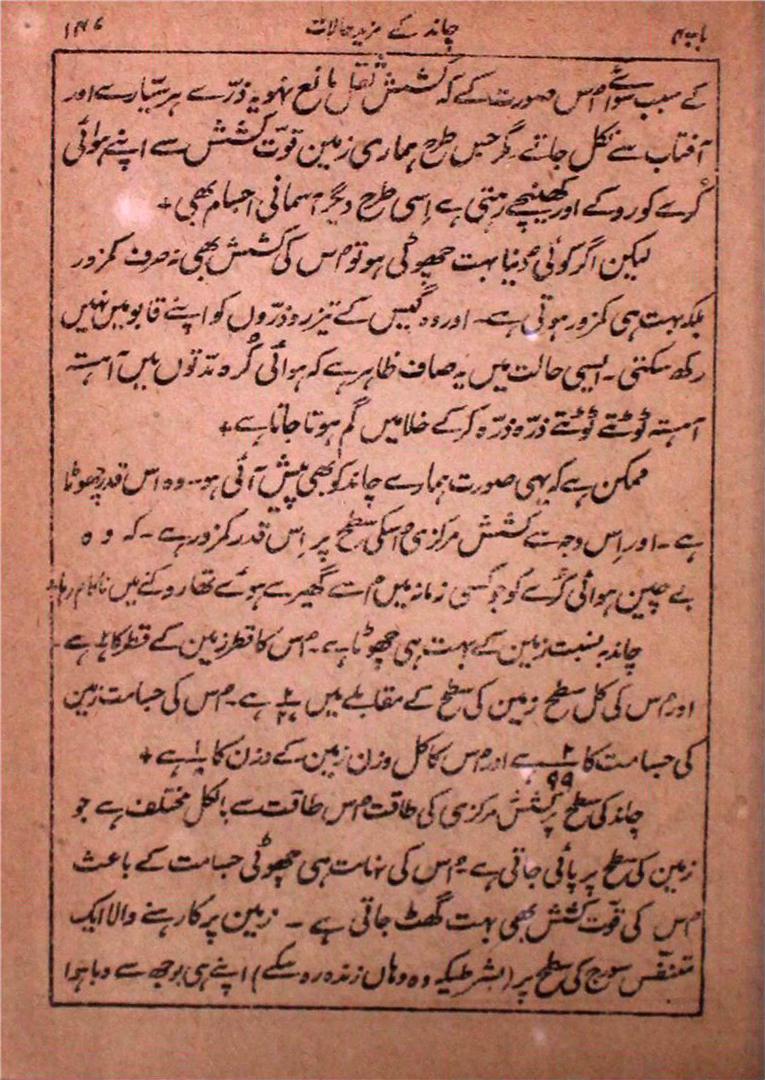 باب ۴ چاند کے مزید حالات ۱۴۶
کے سبب سوائے اُس صورت کے کہ کشش ثقل مانع نہو یہ ذرّے ہر سیّارے اور
آفتاب سے نکل جاتے مگر جس طرح ہماری زمین قوّت کشش سے اپنے ہوائی
کُرے کو روکے اور کھینچے رہتی ہے اِسی طرح دیگر آسمانی اجسام بھی +
لیکن اگر کوئی دُنیا بہت چھوٹی ہو تو اُس کی کشش بھی نہ صرف کمزور
بلکہ بہت ہی کمزور ہوتی ہے۔ اور وہ گیس کے تیز رو ذرّوں کو اپنے قابو میں نہیں
رکھ سکتی۔ ایسی حالت میں یہ صاف ظاہر ہے کہ ہوائی کُرہ مدّتوں میں آہستہ
آہستہ ٹوٹتے ٹوٹتے ذرّہ ذرّہ کرکے خلا میں گم ہوتا جاتا ہے +
ممکن ہے کہ یہی صورت ہمارے چاند کو بھی پیش آئی ہو۔ وہ اس قدر چھوٹا
ہے۔ اور اِس وجہ سے کشش مرکزی اُسکی سطح پر اِس قدر کمزور ہے۔ کہ وہ
بے چین ہوائی کُرے کو جو کسی زمانہ میں اُسے گھیرے ہوئے تھا روکنے میں ناکام رہا +
چاند بہ نسبت زمین کے بہت ہی چھوٹا ہے۔ اُس کا قطر زمین کے قطر کا ہے۔
اور اُس کی کل سطح زمین کی سطح کے مقابلے میں ہے۔ اُس کی جسامت زمین
کی جسامت کا ۲/۹۹ ہے اور اُس کا کل وزن زمین کے وزن کا ہے +
چاند کی سطح پر کشش مرکزی کی طاقت اُس طاقت سے بالکل مختلف ہے جو
زمین کی سطح پر پائی جاتی ہے۔ اُس کی نہایت ہی چھوٹی جسامت کے باعث
اُس کی قوّت کشش بھی بہت گھٹ جاتی ہے ۔ زمین پر کا رہنے والا ایک
متنفّس سورج کی سطح پر (بشرطیکہ وہ وہاں زندہ رہ سکے) اپنے ہی بوجھ سے دبا ہوا